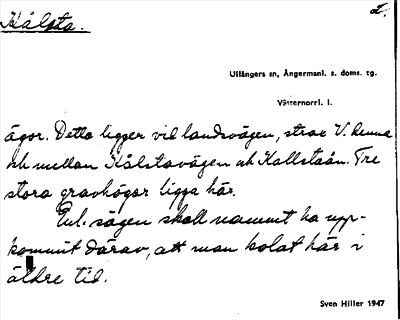 Kålsta.
2.
Ullångers sn, Ångermanl. s. doms. tg.
Västernorrl. l.
ägor. Detta ligger vid landsvägen, strax V. denna
och mellan Kålstavägen och Kallstaån. Tre
stora gravhögar ligga här.
Enl. sägen skall namnet ha upp-
kommit därav, att man kolat här i
äldre tid.
Sven Hiller 1947